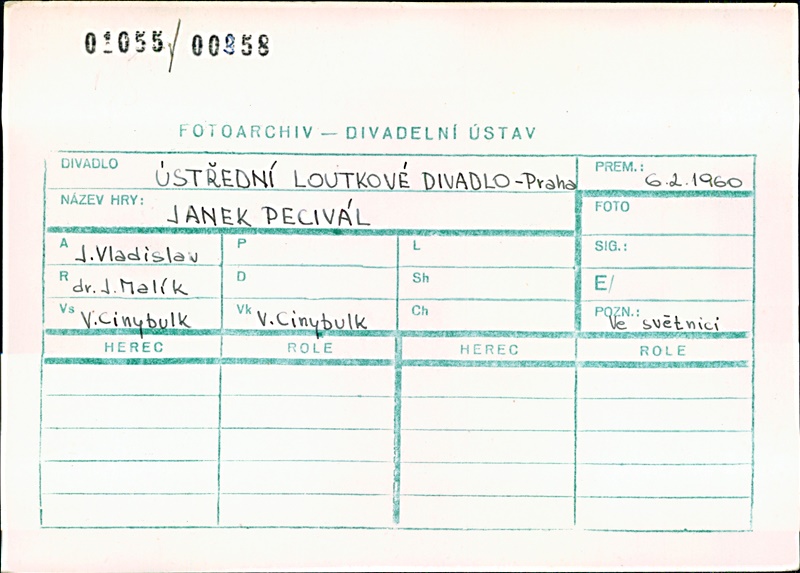 01055/00858
FOTOARCHIV — DIVADELNÍ ÚSTAV
DIVADLO ÚSTŘEDNÍ LOUTKOVÉ DIVADLO-Praha PREM.: 6.2.1960
NÁZEV HRY: JANEK PECIVÁL FOTO
A J.Vladislav P L SIG.:
R dr.J.Malík D Sh E/
Vs V.Cinybulk Vk V.Cinybulk Ch POZN.: Ve světnici
HEREC ROLE HEREC ROLE